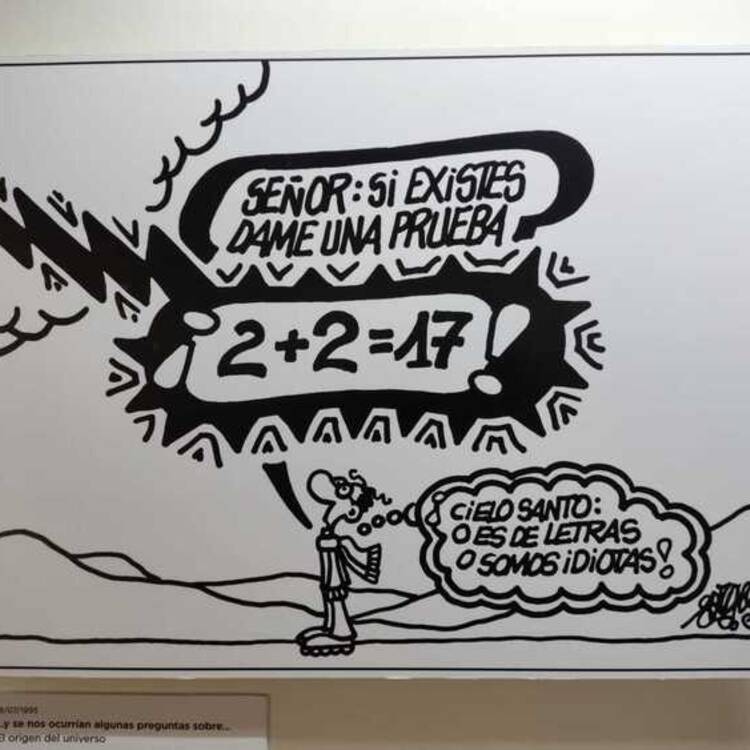 SEÑOR: Si EXiSTES
DAME UNA PRUEBA
¡2+2=17!
¡CiELO SANTO:
O ES DE LETRAS
O SOMOS iDiOTAS!
/07/1995
...y se nos ocurrían algunas preguntas sobre...
El origen del universo